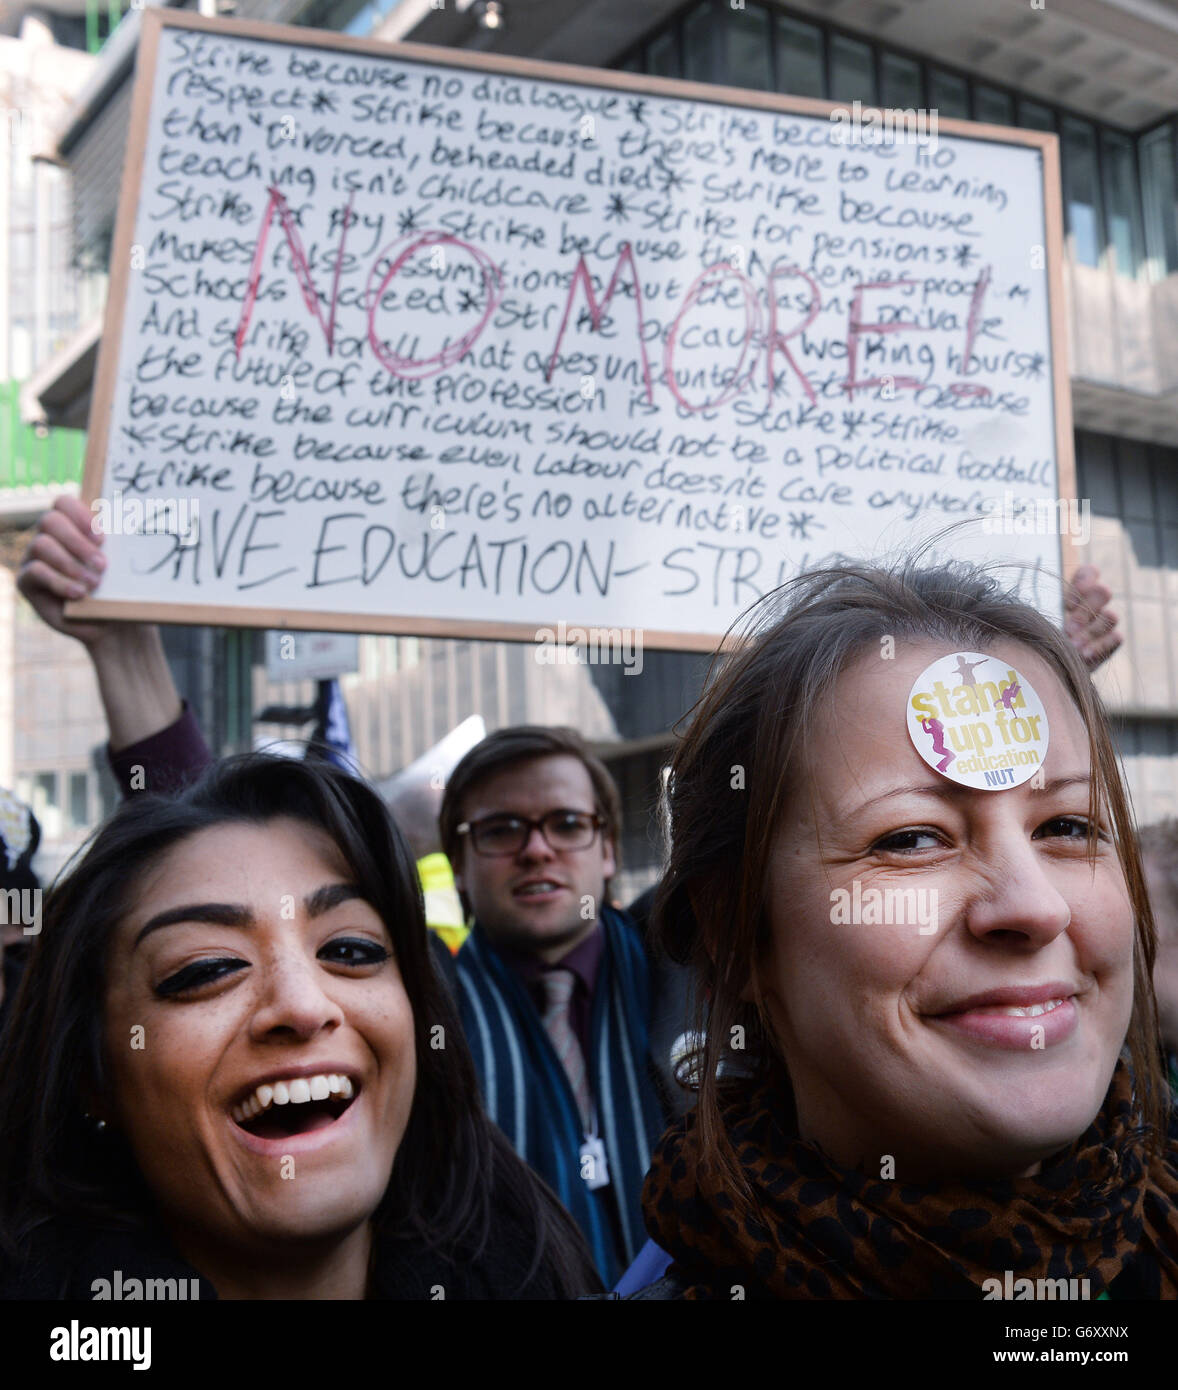 Strike because no dialogue * Strike because no
respect * Strike because there's more to learning
than "Divorced, beheaded died * Strike because
teaching isn't childcare * Strike for pensions *
Strike for pay * Strike because the Academies program
Makes false assumptions about the reasons private
Schools succeed * Strike because working hours *
And strike for all that goes uncounted * Strike because
the future of the profession is at stake * Strike
because the curriculum should not be a political football
* Strike because even Labour doesn't care anymore
Strike because there's no alternative *
SAVE EDUCATION - STRI
NO MORE!
stand
up for
education
NUT
alamy
Image ID: G6XXNX
www.alamy.com